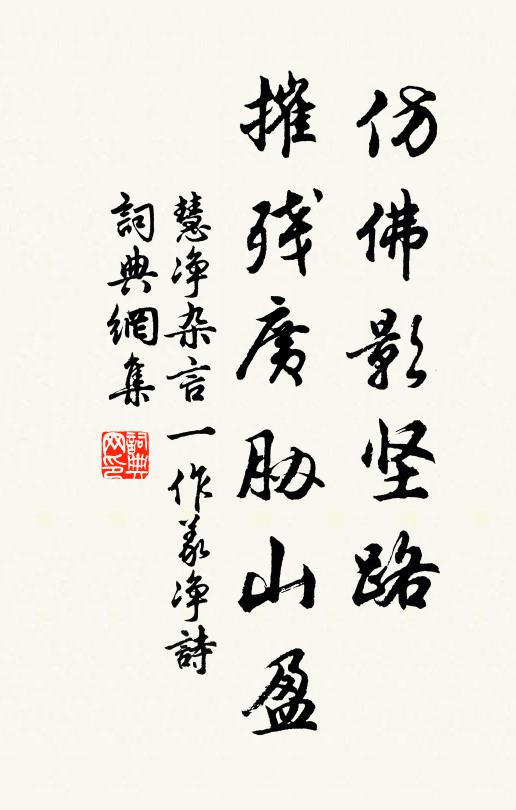 仿佛影坚路
摧残廣胁山盈
慧净杂言一作義净詩
詞典網集
詞典网印